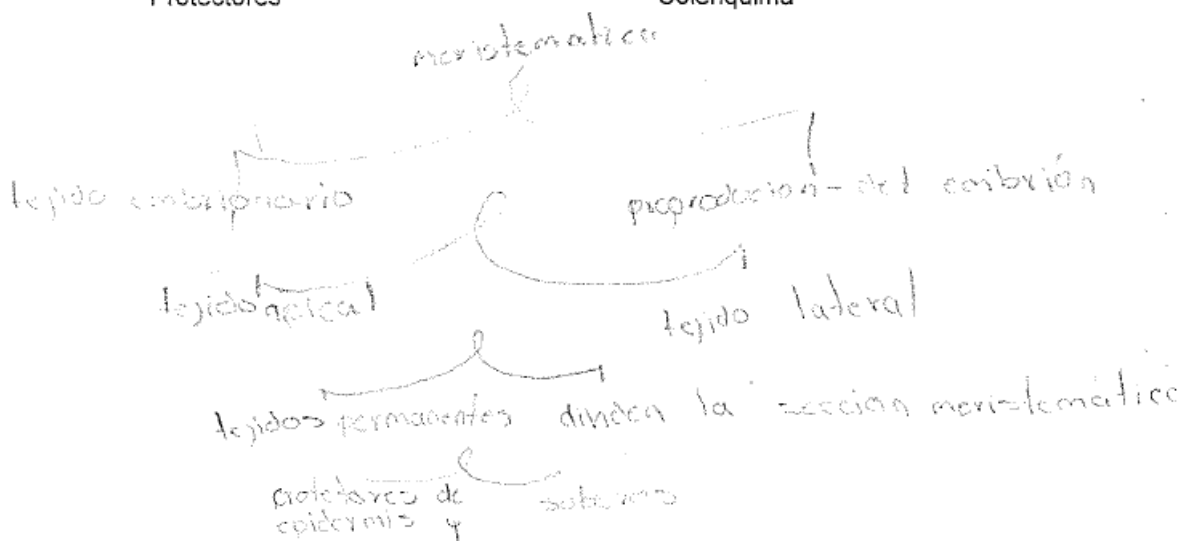 Protectores Colénquima
meristematico
tejido embrionario preproducción del embrión
tejido apical tejido lateral
tejidos permanentes dividen la sección meristemático
protetores de suberos
epidermis y